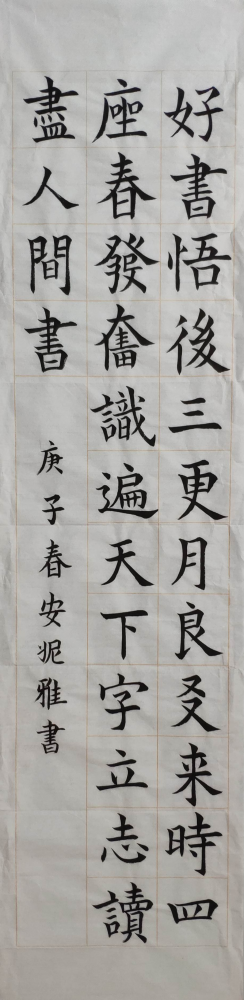 好書悟後三更月良友来時四
座春發奮識遍天下字立志讀
盡人間書
庚子春安妮雅書